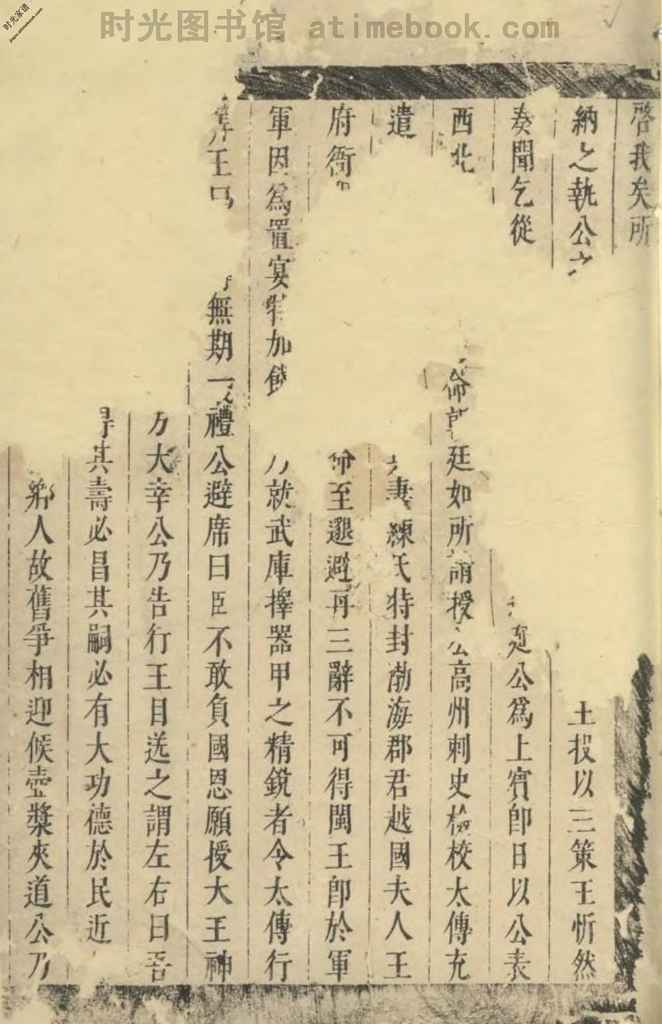 时光图书馆 atimebook.com
时光家谱
www.atimebook.com
啓我矣所
納之執公 王投以三策王忻然
奏聞乞從 公爲上賓卽日以公表
西北 廷如所請授 高州刺史檢校太傅充
遣 妻練氏特封渤海郡君越國夫人王
府衙 命至遜避再三辭不可得閩王卽於軍
軍因爲置宴特加 就武庫擇器甲之精銳者令太傅行
王 無期一 禮公避席曰臣不敢負國恩願授大王神
大幸公乃告行王目送之謂左右曰吾
其壽必昌其嗣必有大功德於民近
鄉人故舊爭相迎候壺漿夾道公乃